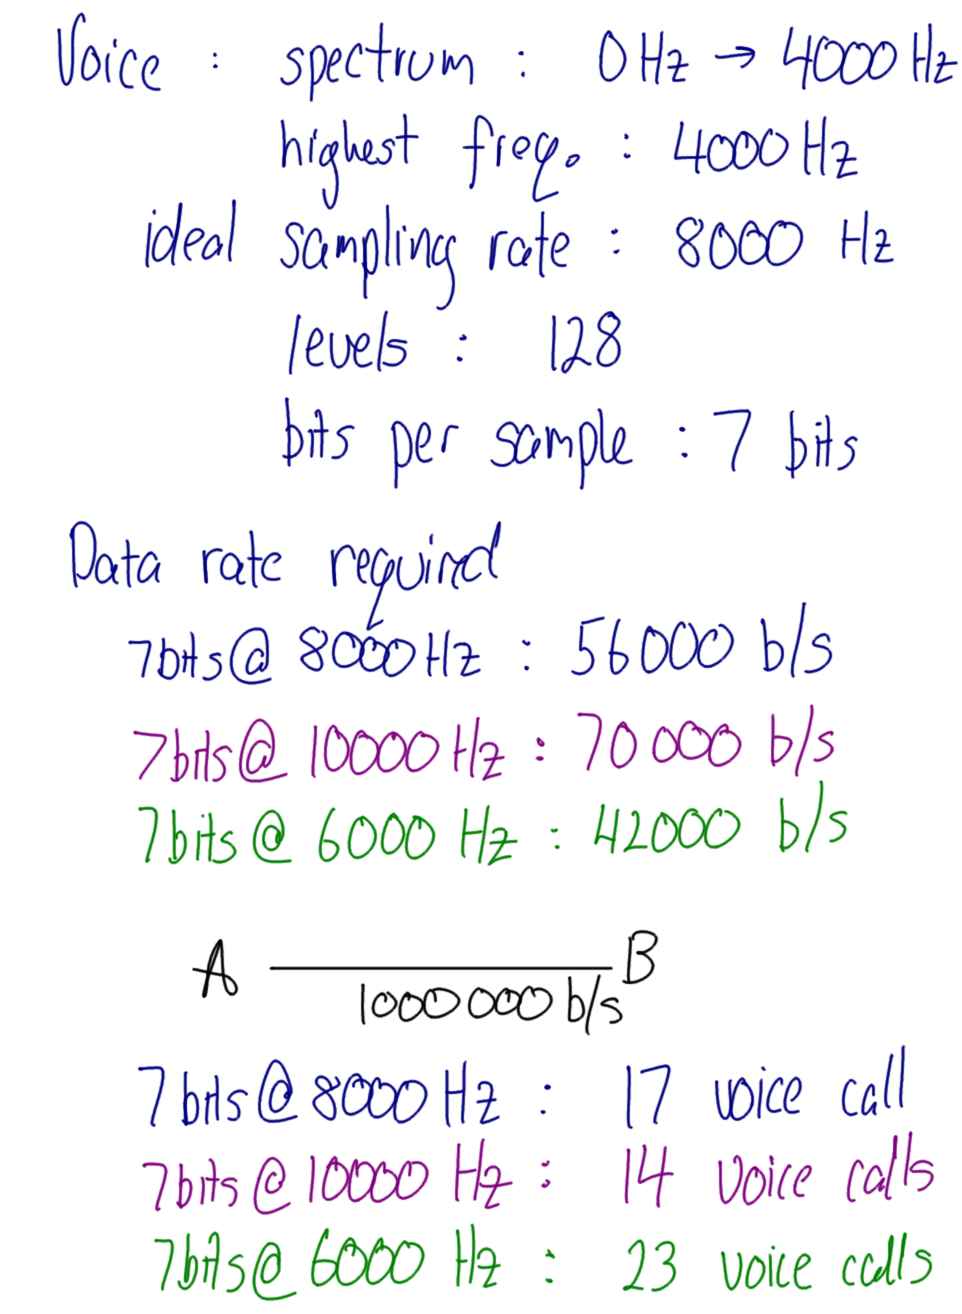 Voice : spectrum : 0 Hz → 4000 Hz
highest freq. : 4000 Hz
ideal sampling rate : 8000 Hz
levels : 128
bits per sample : 7 bits
Data rate required
7bits@ 8000 Hz : 56000 b/s
7bits@ 10000 Hz : 70000 b/s
7bits @ 6000 Hz : 42000 b/s
A B
1000000 b/s
7 bits @ 8000 Hz : 17 voice call
7bits @ 10000 Hz : 14 voice calls
7bits@ 6000 Hz : 23 voice calls